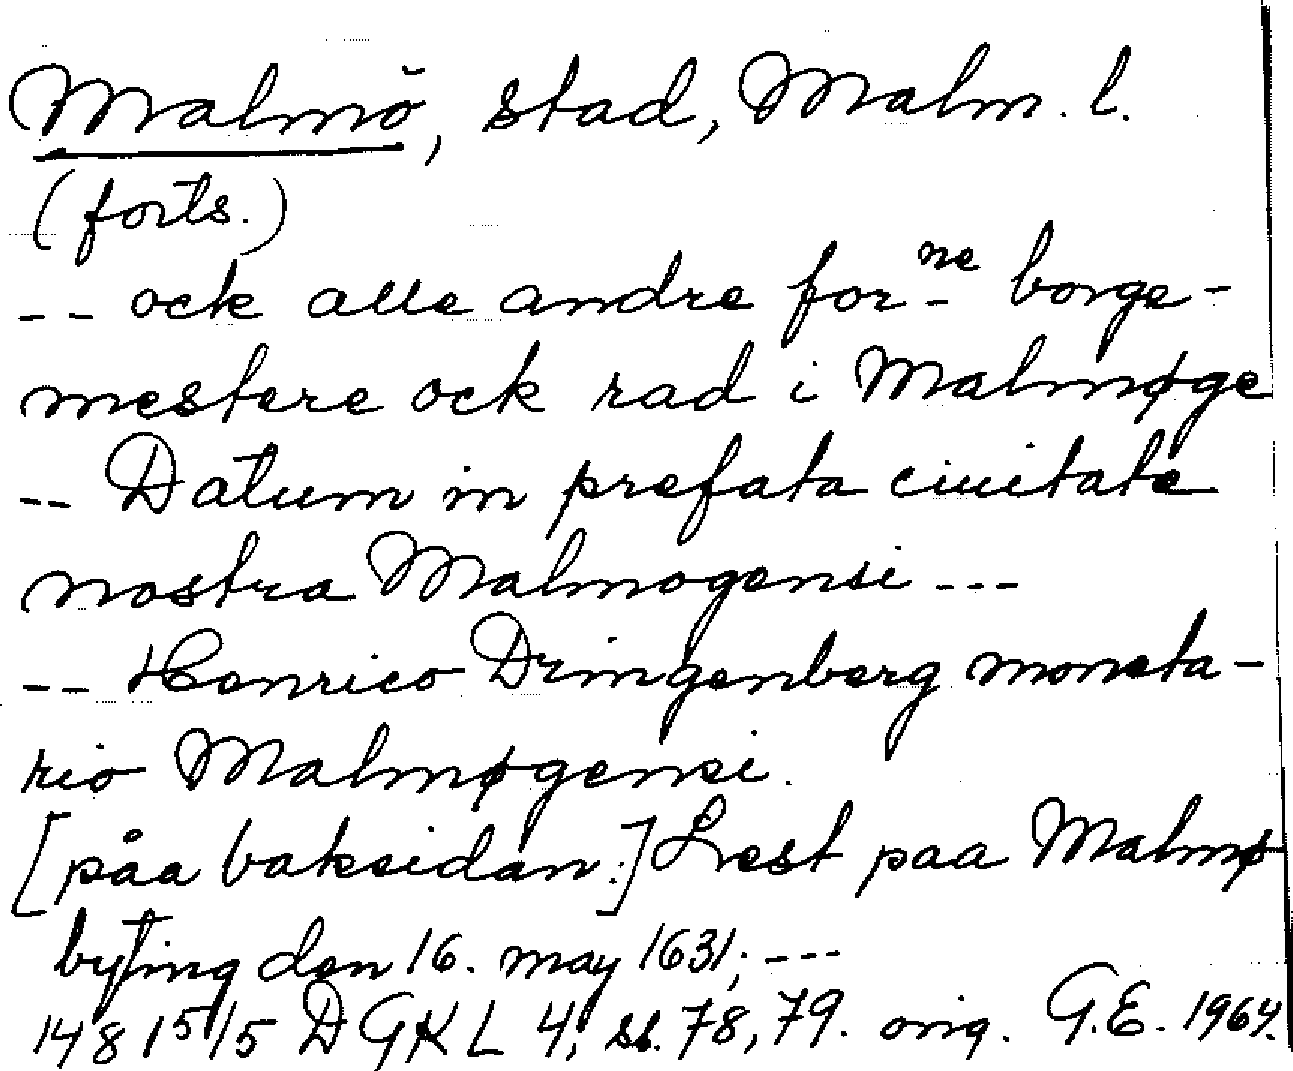 Malmö, stad, Malm. l.
(forts.)
-- ock alle andre for-ne borge-
mestere ock rad i Malmøge
-- Datum in prefata ciuitate
nostra Malmogensi ---
-- Henrico Dringenberg moneta-
rio Malmøgensi.
[påa baksidan:] Lest paa Malmø
byting den 16. may 1631; ---
1481 15/5 DGKL 4; ss. 78, 79. orig. G.E. 1964.